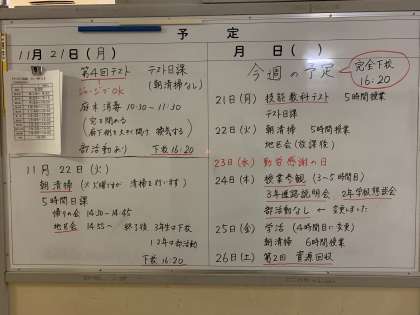 予定
11月 21日(月)
第4回テスト テスト日課
(朝清掃なし)
ジャージでOK
床木消毒 10:30〜11:30
(窓を閉める
廊下側を大きく開け 換気する)
部活動あり 下校 16:20
11月 22日(火)
朝清掃 (火曜ですが 清掃を行います)
5時間日課
帰りの会 14:30〜14:45
地区会 14:55〜 終了後 3年生下校
1 2年は部活動
下校 16:20
月 日( )
今週の予定
完全下校
16:20
21日(月) 技能教科テスト 5時間授業
テスト日課
22日(火) 朝清掃 5時間授業
地区会(放課後)
23日(水) 勤労感謝の日
24日(木) 授業参観 (3〜5時間目)
3年進路説明会 2年学校懇談会
部活動なし ← 変更しました
25日(金) 学活 (4時間目に変更)
朝清掃 6時間授業
26日(土) 第2回 資源回収